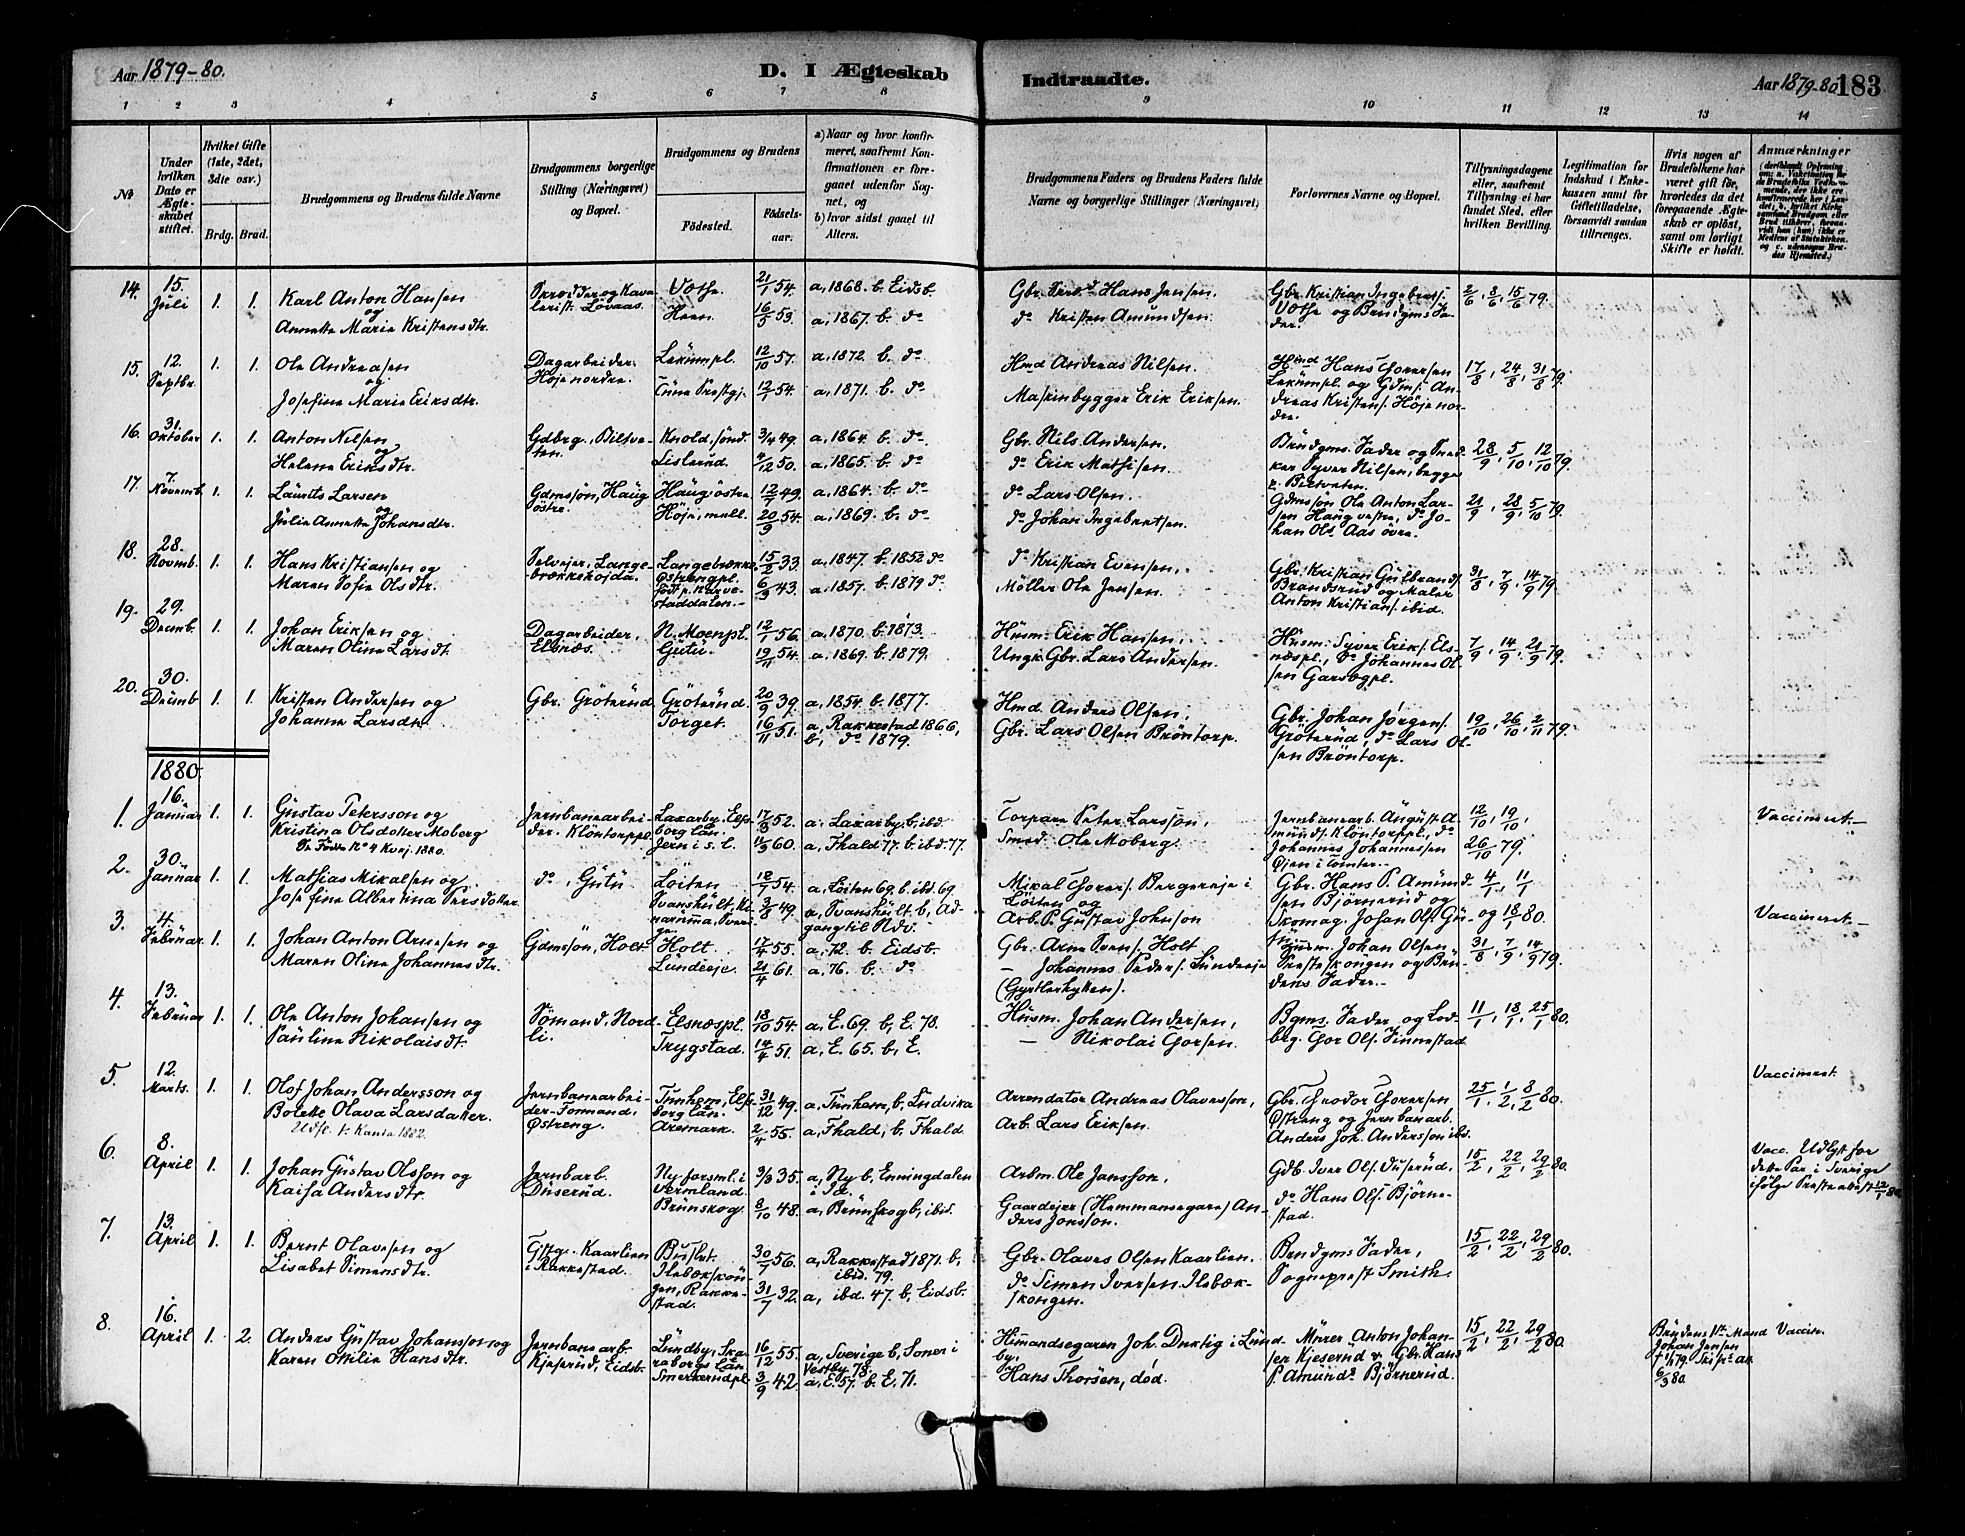 Aar 1879-80.
D. I Ægteskab
Indtraadte.
Aar 1879-80
183
1 2 3 4 5 6 7 8 9 10 11 12 13 14
№
Under hvilken Dato er Ægteskabet stiftet.
Hvilket Gifte (1ste, 2det, 3die osv.)
Brdg. Brud.
Brudgommens og Brudens fulde Navne
Brudgommens borgerlige Stilling (Næringsvei) og Bopæl.
Brudgommens og Brudens
Fødested. Fødselsaar.
a) Naar og hvor konfirmeret, saafremt Konfirmationen er foregaaet udenfor Sognet, og
b) hvor sidst gaaet til Alters.
Brudgommens Faders og Brudens Faders fulde Navne og borgerlige Stillinger (Næringsvei)
Forlovernes Navne og Bopæl.
Tillysningsdagene eller, saafremt Tillysning ei har fundet Sted, efter hvilken Bevilling.
Legitimation for Indskud i Enkekassen samt for Giftetilladelse, forsaavidt saadan tiltrænges.
Hvis nogen af Brudefolkene har været gift før, hvorledes da det foregaaende Ægteskab er opløst, samt om lovligt Skifte er holdt.
Anmærkninger
14. 15. Juli 1. 1. Karl Anton Hansen og Annette Marie Kristensdtr. Løvaas. Vothe. 21/1 54. a, 1868. b. Eidsb. Gbr. Hans Jensen. Gbr. Kristian Ingebretsf. Vothe og Brudgms Fader. 2/6, 8/6, 15/6 79.
Heen. 16/5 53. a, 1867. b. do do Kristen Amundsen.
15. 12. Septbr. 1. 1. Ole Andreasen og Josefine Marie Eriksdtr. Dagarbeider Høje nordre. Lekumpl. 12/10 57. a. 1872. b. do Hmd Andreas Nilsen. Hmd Hans Thoresen Lekumpl. og Gdms. Andreas Kristens. Høje nordre. 17/8, 24/8, 31/8 79.
Tune Prestgj. 12/1 54. a, 1871. b. do Maskinbygger Erik Eriksen.
16. 31. Oktober 1. 1. Anton Nilsen og Helene Eriksdtr. Gdbrg., Biltveten. Knold, sönd. 3/4 49. a. 1864. b. do Gbr. Nils Andersen. Brudgms. Fader og Snedker Syver Nilsen, begge p. Biltveten. 28/9, 5/10, 12/10 79.
Lislerud. 4/12 50. a. 1865. b. do do Erik Mathisen.
17. 7. Novemb. 1. 1. Laurits Larsen og Julie Annette Johansdtr. Gdmssøn, Haug østre. Haug østre 12/7 49. a. 1864. b. do do Lars Olsen. Gdmssøn Ole Anton Larsen Haug vestre, do Johan Ols. Aas øvre. 21/9, 28/9, 5/10 79.
Høje, mell. 20/9 54. a. 1869. b. do do Johan Ingebretsen.
18. 28. Novmb. 1. 1. Hans Kristiansen og Maren Sofie Olsdtr. Selvejer, Langebrækkehøjda. Langebrække, Østrengpl. 15/2 33. a. 1847. b. 1852 do do Kristian Evensen. Gbr. Kristian Gulbrands. Brandsrud og Maler Anton Kristians. ibid. 31/8, 7/9, 14/9 79.
født p. Karvestaddalen. 6/3 43. a. 1857. b. 1879 do Möller Ole Jensen.
19. 29. Decmb. 1. 1. Johan Eriksen og Maren Oline Larsdt. Dagarbeider, Elsnæs. N. Moenpl. 12/1 56. a. 1870. b. 1873. Husm. Erik Hansen. Husm. Syver Eriks. Elsnæspl., do Johannes Olsen Garsegpl. 7/9, 14/9, 21/9 79.
Gutu. 19/11 54. a. 1869. b. 1879. Ungk. Gbr. Lars Andersen.
20. 30. Dcmb 1. 1. Kristen Andersen og Johanne Larsdtr Gbr. Gröterud. Gröterud. 20/9 39. a, 1854. b. 1877. Hmd. Anders Olsen, Gbr. Johan Jørgens. Gröterud, do Lars Olsen Bröntorp. 19/10, 26/10, 2/11 79.
Torget. 16/11 51. a, Rakkestad 1866, b, do 1879. Gbr. Lars Olsen Bröntorp.
1880.
1. 16. Januar 1. 1. Gustav Petersson og Kristina Olsdotter Moberg Jernbanearbeider. Klöntorppl. Laxarby, Elfsborg län. 17/3 52. a. Laxarby, b, ibd. Torpare Peter Larsson, Jernbanearb. August Amunds. Klöntorppl., do Johannes Johannessen Øjen i Tomter. 12/10, 19/10, 26/10 79. Vaccineret.
Se Fødte No 4 Kvkj. 1880. Jern i s. l. 11/3 60. a, Fhald 77. b. ibd. 77. Smed. Ole Moberg.
2. 30. Januar 1. 1. Mathias Mikalsen og Josefine Albertina Persdotter do, Gutu Løiten 18/7 54. a, Løiten 69. b. ibd. 69 Mikal Thorers. Bergereje i Løiten og Gbr. Hans P. Amunden Bjørnerud og Skomag. Johan Ols. Gu- 4/1, 11/1 og 18/1 80. Vaccineret.
3/8 49. a, Svanshult. b, Adgang til Ndv. Arb. P. Gustav Johnson
3. 4. Februar 1. 1. Johan Anton Arnesen og Maren Oline Johannesdtr. Gdmssøn, Holt Holt. 17/4 55. a, 72. b. Eidsb. Gbr. Arne Svens. Holt Husm. Johan Olsen Presteskougen og Brudens Fader. 31/8, 7/9, 14/9 79.
Lundeeje. 21/4 61. a, 76. b. do – Johannes Peders. Lundeeje (Gyrtlerhytten).
4. 13. Februar 1. 1. Ole Anton Johansen og Pauline Nikolaisdt. Sømand, Nordli. Elsnæspl. 18/10 54. a, E. 69. b, E. 78. Husm. Johan Andersen, Bgms. Fader og Lodbrg. Thor Ols. Finnestad 11/1, 18/1, 25/1 80.
Trygstad. 14/4 51. a, E. 65. b, E. – Nikolai Thorsen.
5. 12. Marts. 1. 1. Olof Johan Andersson og Bolette Olava Larsdatter. Jernbanearbeider-Formand, Østreng. Tunhem, Elfsborg län. 31/12 49. a, Tunhem, b, Ludvika Arrendator Andreas Olavesson, Gbr. Theodor Thoresen Østreng og Jernbanearb. Anders Joh. Andersson ibd. 25/1, 1/2, 8/2 80. Vaccineret.
1882. Aremark. 2/4 55. a, Fhald, b, Fhald. Arb. Lars Eriksen.
6. 8. April 1. 1. Johan Gustav Olsson og Kaisa Andersdtr. Jernbarb. Duserud. Ny forsml. i Vermland. 3/3 35. a, Ny b, Enningdalen i Id. Arbm. Ole Jansson, Gdb. Iver Ols. Duserud, do Hans Ols. Bjørnestad. 15/2, 22/2, 29/2 80. Vacc. Udlyst for dette Par i Sverige ifølge Presteattest 12/1 80
Brunskog. 8/10 48. a, Brunskog b, ibid. Gaardejer (Hemmansegare) Anders Jonsson.
7. 13. April 1. 1. Bernt Olavesen og Lisabet Simensdtr. Gstg. Kaarlien i Rakkestad. Buslet. 30/7 56. a, Rakkestad 1871. b, ibid. 79. Gbr. Olaves Olsen Kaarlien. Brudgms Fader, Sogneprest Smith. 15/2, 22/2, 29/2 80.
Ilebækskougen, Rakkestad. 31/7 32. a, ibd. 47. b, Eidsb. do Simen Iversen Ilebækskongen.
8. 16. April 1. 2. Anders Gustav Johansson og Karen Otilie Hansdtr. Jernbanearb. Kjeserud, Eidsb. Lundby, Skaraborgs län 16/12 55. a, Sverige b, Soner i Vestby 78. Himandsegaren Joh. Duktig i Lundby. Murer Anton Johansen Kjeserud & Gbr. Hans P. Amunds Bjørnerud. 15/2, 22/2, 29/2 80. Brudens 1ste Mand Johan Jensen † 1/1 79. Skifteatt. 6/3 80. Vaccin.
Smererudpl 3/9 42. a, E. 57. b. E. 71. Hans Thorsen, död.